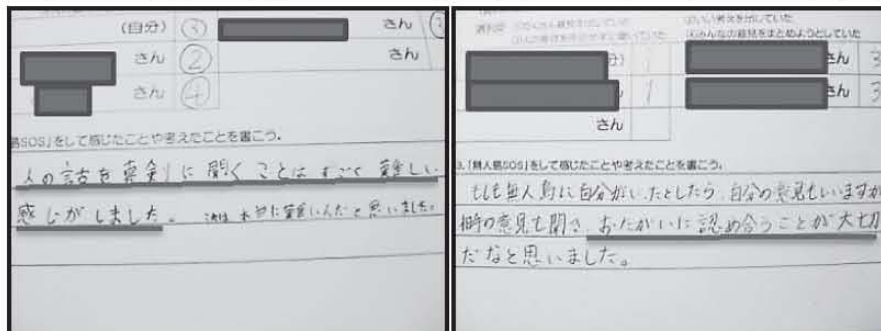 (自分) ③ さん
さん ② さん
さん ④
島SOS」をして感じたことや考えたことを書こう。
人の話を真剣に聞くことはすごく難しい
感じがしました。
いい考えを出していた
みんなの意見をまとめようとしていた
分) 1 さん 3
さん 1 さん 3
さん
3.「無人島SOS」をして感じたことや考えたことを書こう。
もしも無人島に自分がいたとしたら、自分の意見もいいますが
相手の意見も聞き、おたがいに認め合うことが大切
だなと思いました。